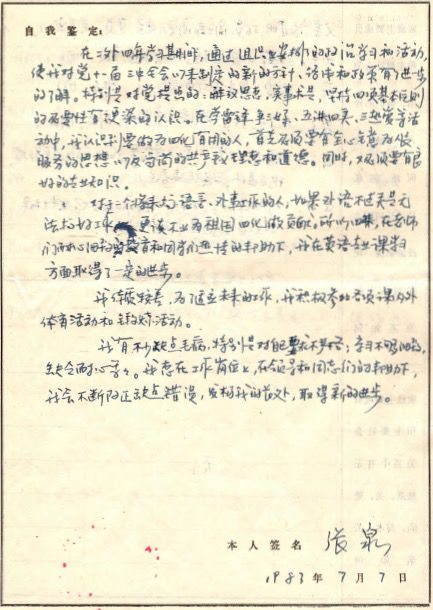 自我鉴定：
在二外四年学习期间，通过组织安排的政治学习和活动，
使我对党十一届三中全会以来制定的新的方针、路线和政策有了进一步
的了解。特别是对党提出的：解放思想，实事求是，坚持四项基本原则
的重要性有了较深的认识。在学雷锋、争三好、五讲四美、三热爱等活
动中，我认识到要做为四化有用的人，首先必须要有全心全意为人民
服务的思想以及崇高的共产主义理想和道德。同时，还必须要有良
好的专业知识。
对于一个将来搞语言、外事工作的人，如果外语不过关是无
法搞好工作，更谈不上为祖国四化做贡献。所以四年来，在老师
们耐心细致的教育和同学们热情的帮助下，我在英语专业课学习
方面取得了一定的进步。
我体质较差，为了适应未来的工作，我积极参加各项课内外
体育活动和锻炼活动。
我有不少缺点毛病，特别是对自己要求不严格；学习不够刻苦，
缺乏耐心等。我愿在工作岗位上，在领导和同志们的帮助下，
我会不断改正缺点错误，发扬我的长处，取得新的进步。
本人签名 张泉
1983年7月7日